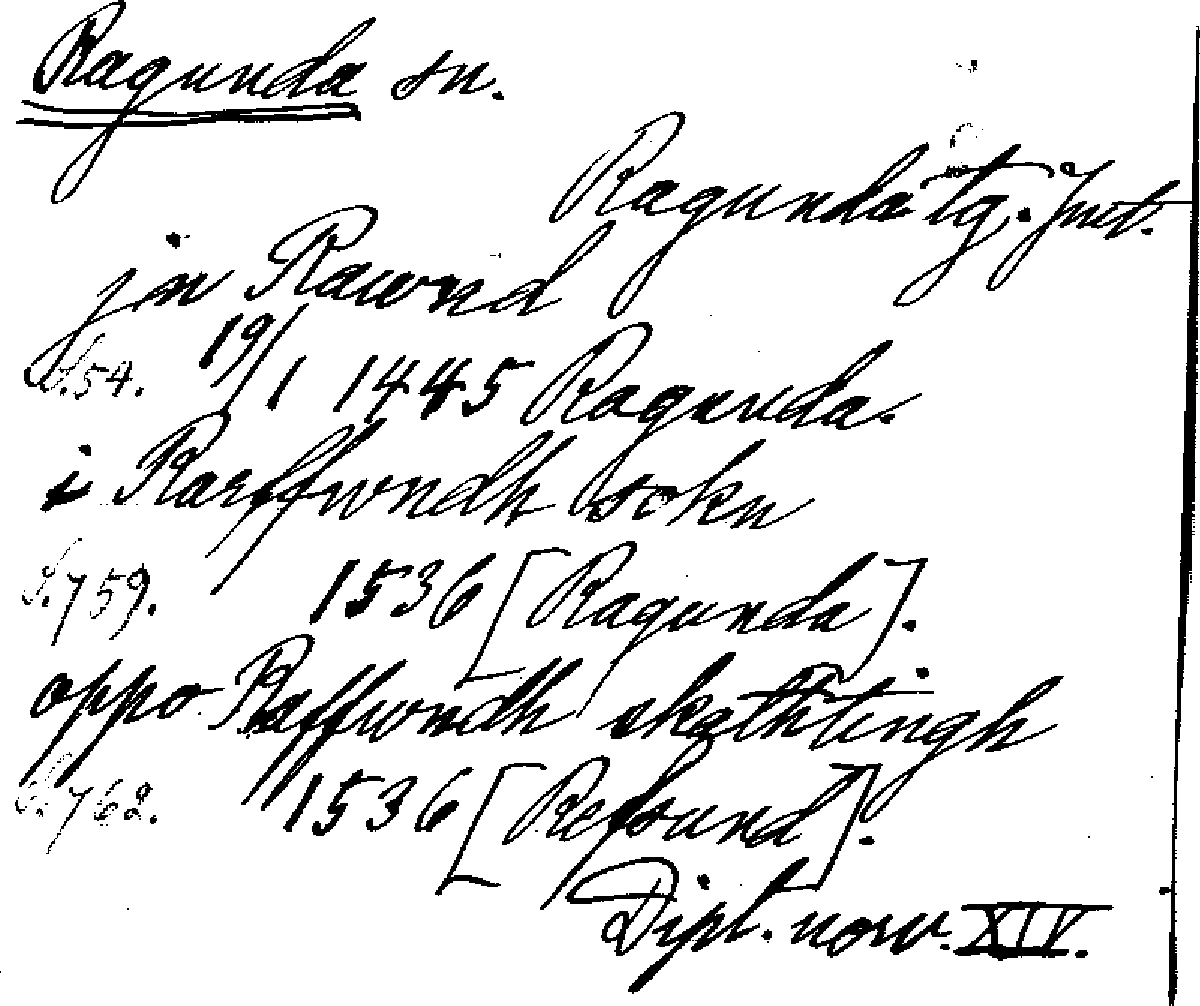 Ragunda sn.
Ragunda tg. Jmt.
jn Rawnd
S.54. 19/1 1445 Ragunda.
i Rarffwndh sokn
S.759. 1536 [Ragunda].
oppo Raffwndh skathtingh
S.762. 1536 [Refsund].
Dipl. norv. XIV.